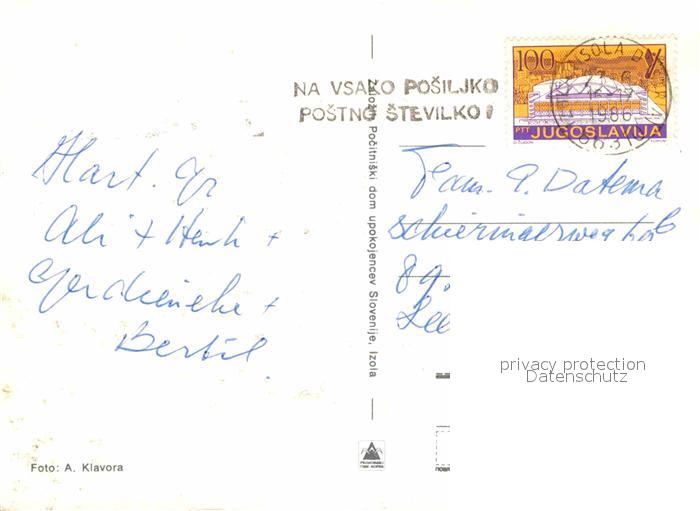 NA VSAKO POŠILJKO
POŠTNO ŠTEVILKO!
100
PTT JUGOSLAVIJA
IZOLA
1986
Hart. gr
Ali + Henk +
Gerdieneke +
Bertil.
Fam. P. Datema
89.
Lee
Založil Počitniški dom upokojencev Slovenije, Izola
privacy protection
Datenschutz
Foto: A. Klavora